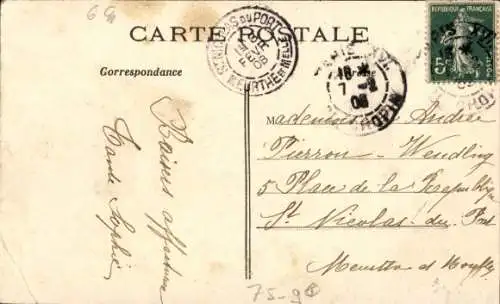 6
CARTE POSTALE
Correspondance
Adresse
ST NICOLAS DU PORT
MEURTHE ET MOSELLE
PARIS XVI
7 - 2
08
CHOPIN
REPUBLIQUE FRANÇAISE
5
Baisers affectueux
Tante Sophie
Mademoiselle Andrée
Pierron - Wendling
5 Place de la République
St Nicolas du Port
Meurthe et Moselle
75-9